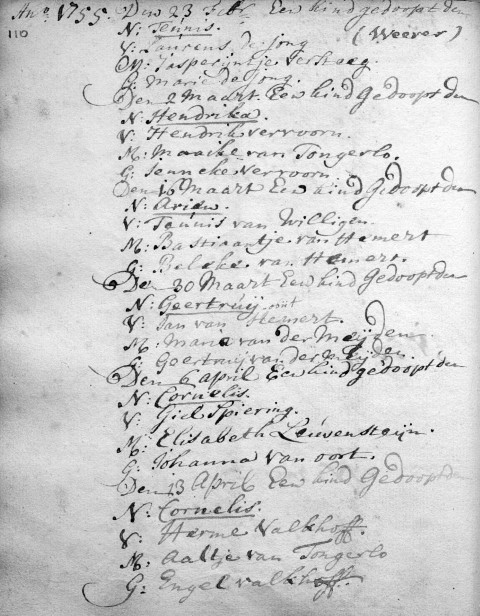 Anº 1755. Den 23 Febr. Een kind gedoopt den
110
N: Teunis. (Weever)
V: Laurens de jong
M: Jasperijntje verhaag.
G: Marie de jong.
Den 2 Maart. Een kind Gedoopt den
N: Hendrika.
V: Hendrik vervoorn.
M: Maaike van Tongerlo.
G: Jenneke vervoorn.
Den 16 Maart Een kind Gedoopt den
N: Arien.
V: Teunis van Willigen.
M: Bastiaantje van Hemert
G: Beleke van Hemert.
Den 30 Maart Een kind Gedoopt den
N: Geertruij.
V: Jan van Hemert.
M: Maria van der Meijden
G: Geertruij van der Meijden.
Den 6 April Een kind gedoopt den
N: Cornelis.
V: Giel Spiering.
M: Elisabeth Leuwensteijn.
G: Johanna van oort.
Den 13 April Een kind Gedoopt den
N: Cornelis.
V: Herme Valkhoff.
M: Aaltje van Tongerlo
G: Engel valkhoff.